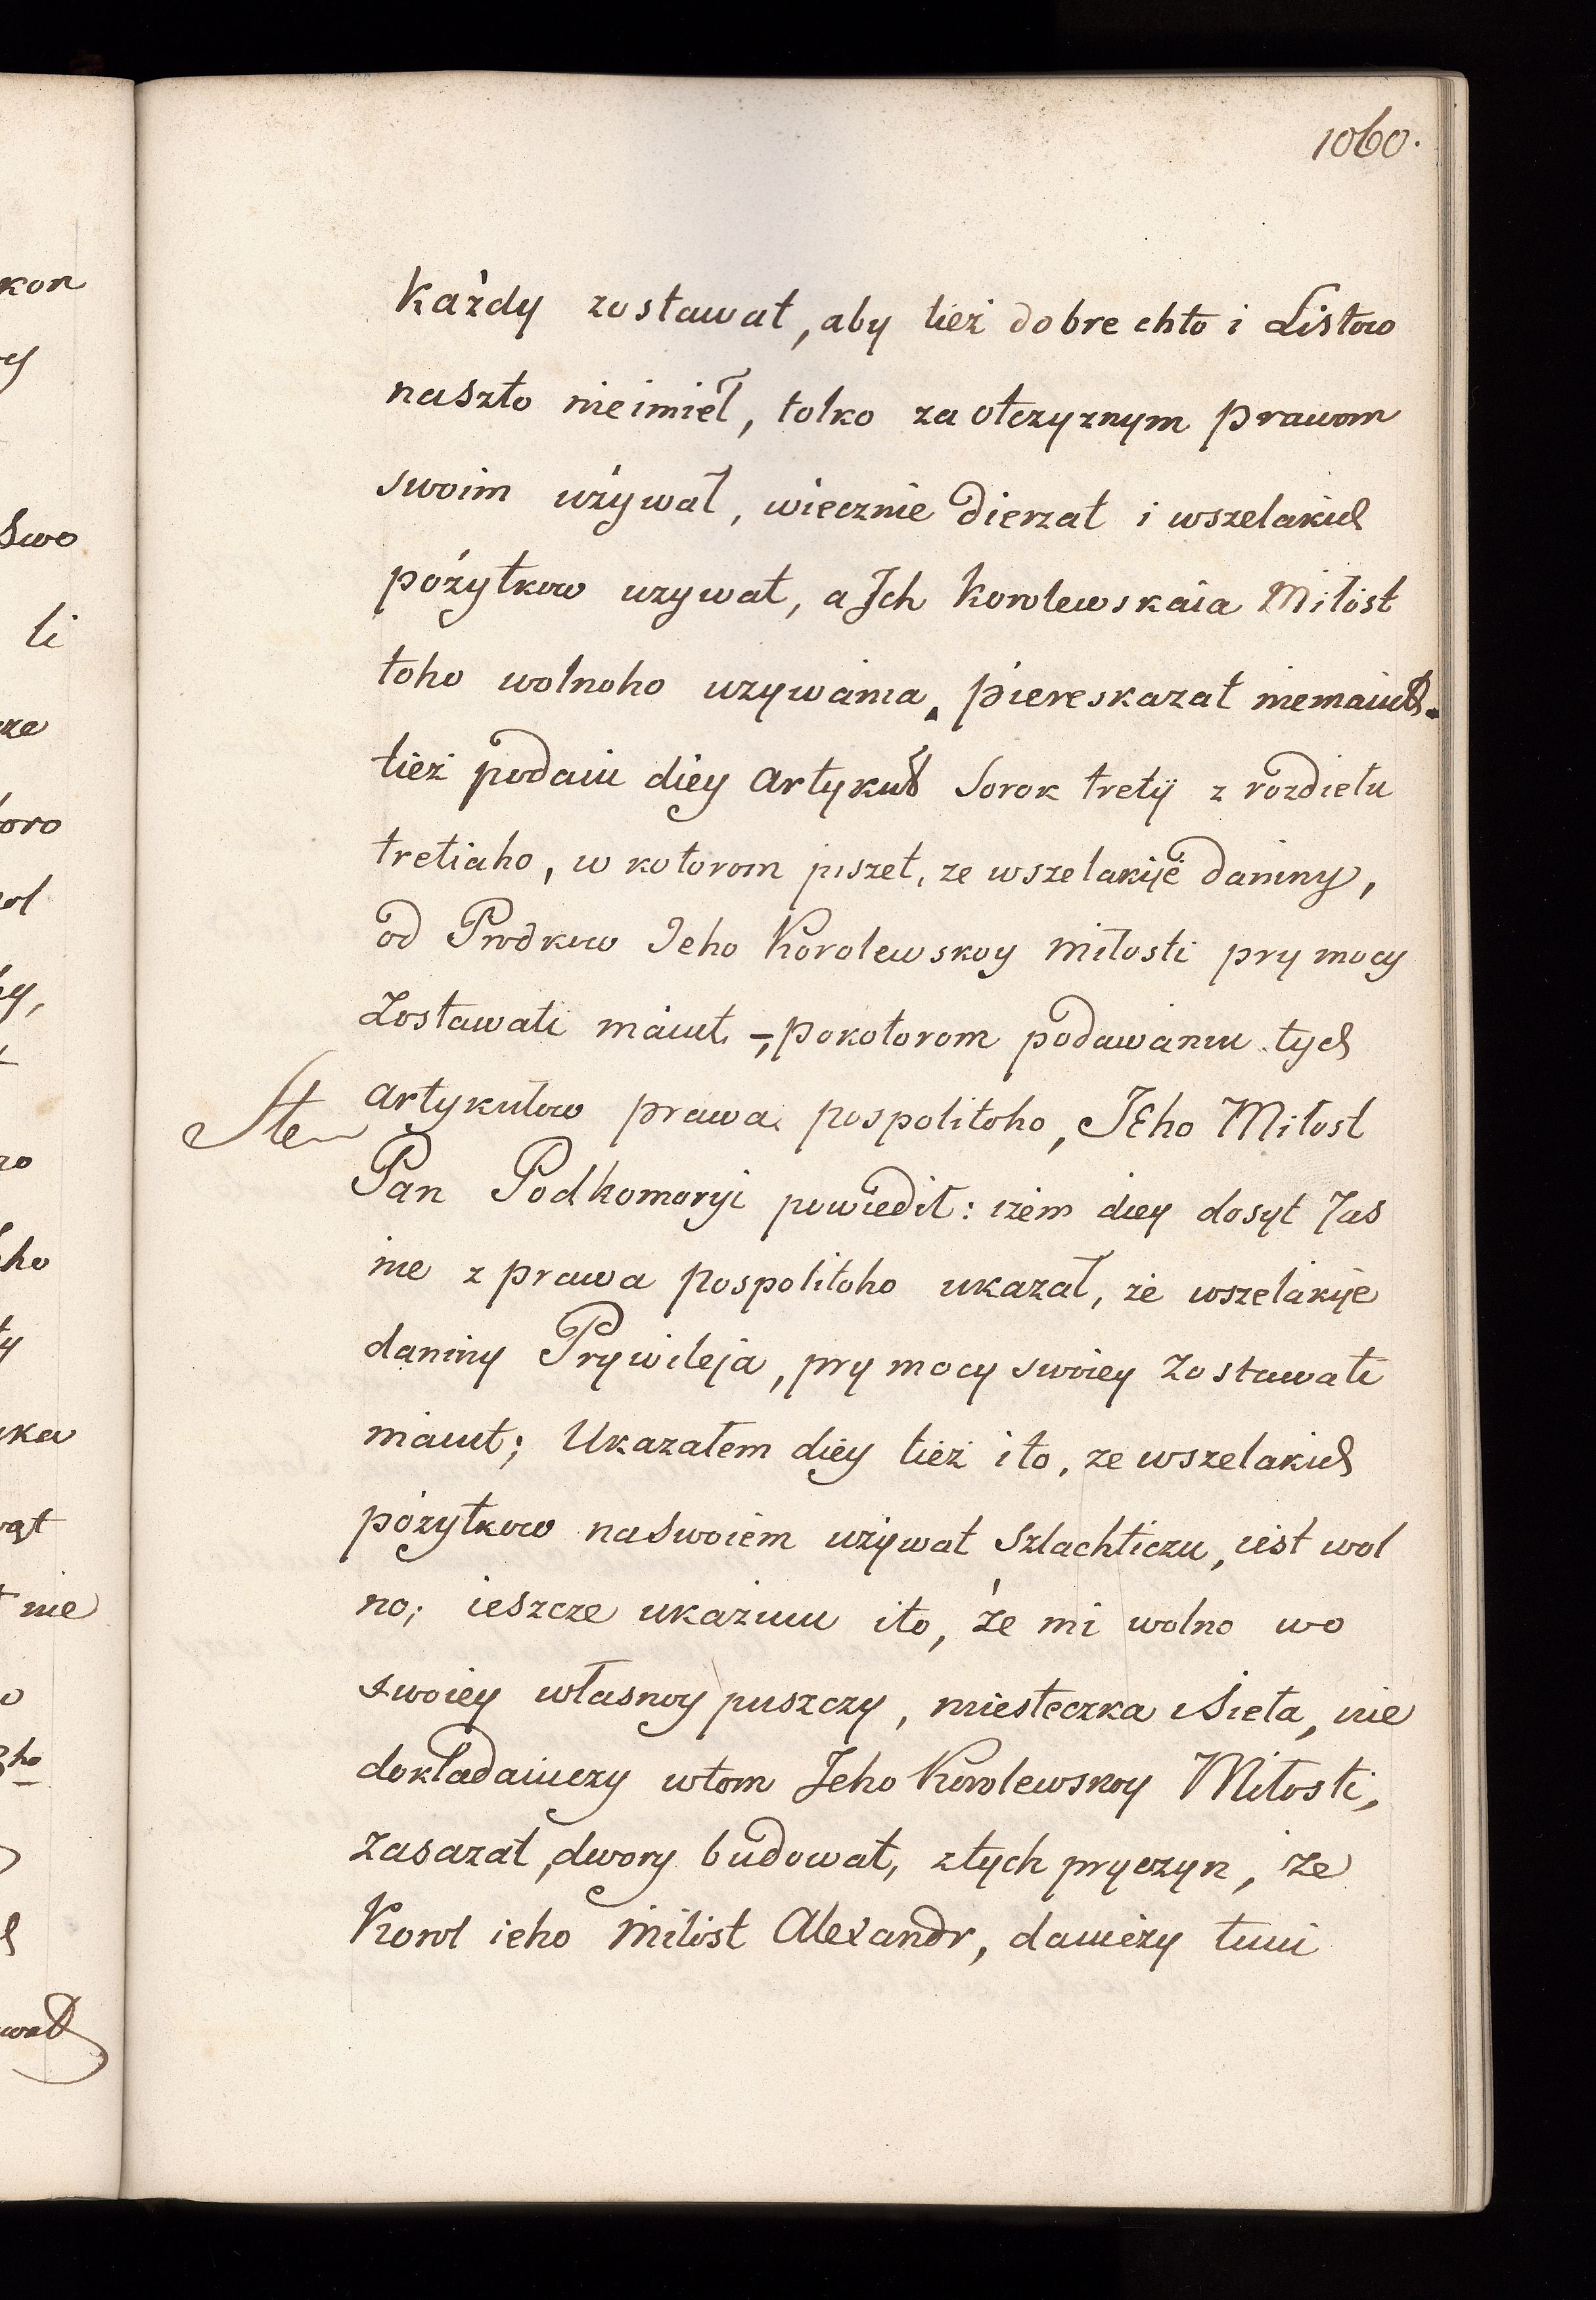 1060.
każdy zostawał, aby tież dobre chto i Listow
naszto nieimieł, tolko za otczyznym prawom
swoim używał, wiecznie dierzał i wszelakich
pożytkow uzywał, a Jch korolewskaia Miłost
toho wolnoho uzywania, piereskazat niemaiut.
tież podaiu diey artykuł sorok tretÿ z rozdiełu
tretiaho, w kotorom piszet, ze wszelakije daniny,
od Prodkow Jeho Korolewskoy miłosti pry mocy
zostawati maiut, – pokotorom podawaniu tych
artykułow prawa pospolitoho, JEho Miłost
Pan Podkomoryi powiedił: iżem diey dosyt Jas
nie z prawa pospolitoho ukazał, że wszelakije
daniny Prywileja, pry mocy swoiey zostawati
maiut; Ukazałem diey tież i to, ze wszelakich
pożytkow naswoiem używat szlachticzu, iest wol
no; ieszcze ukazuiu ito, że mi wolno wo
swoiey własnoy puszczy, miesteczka i Sieła, nie
dokładaiuczy wtom Jeho Korolewskoy Miłosti,
zasazat, dwory budowat, ztych pryczyn, że
Korol ieho miłost Alexandr, daiuczy tuiu
kon
li
ze
oro
ol
zo
ho
ka
nie